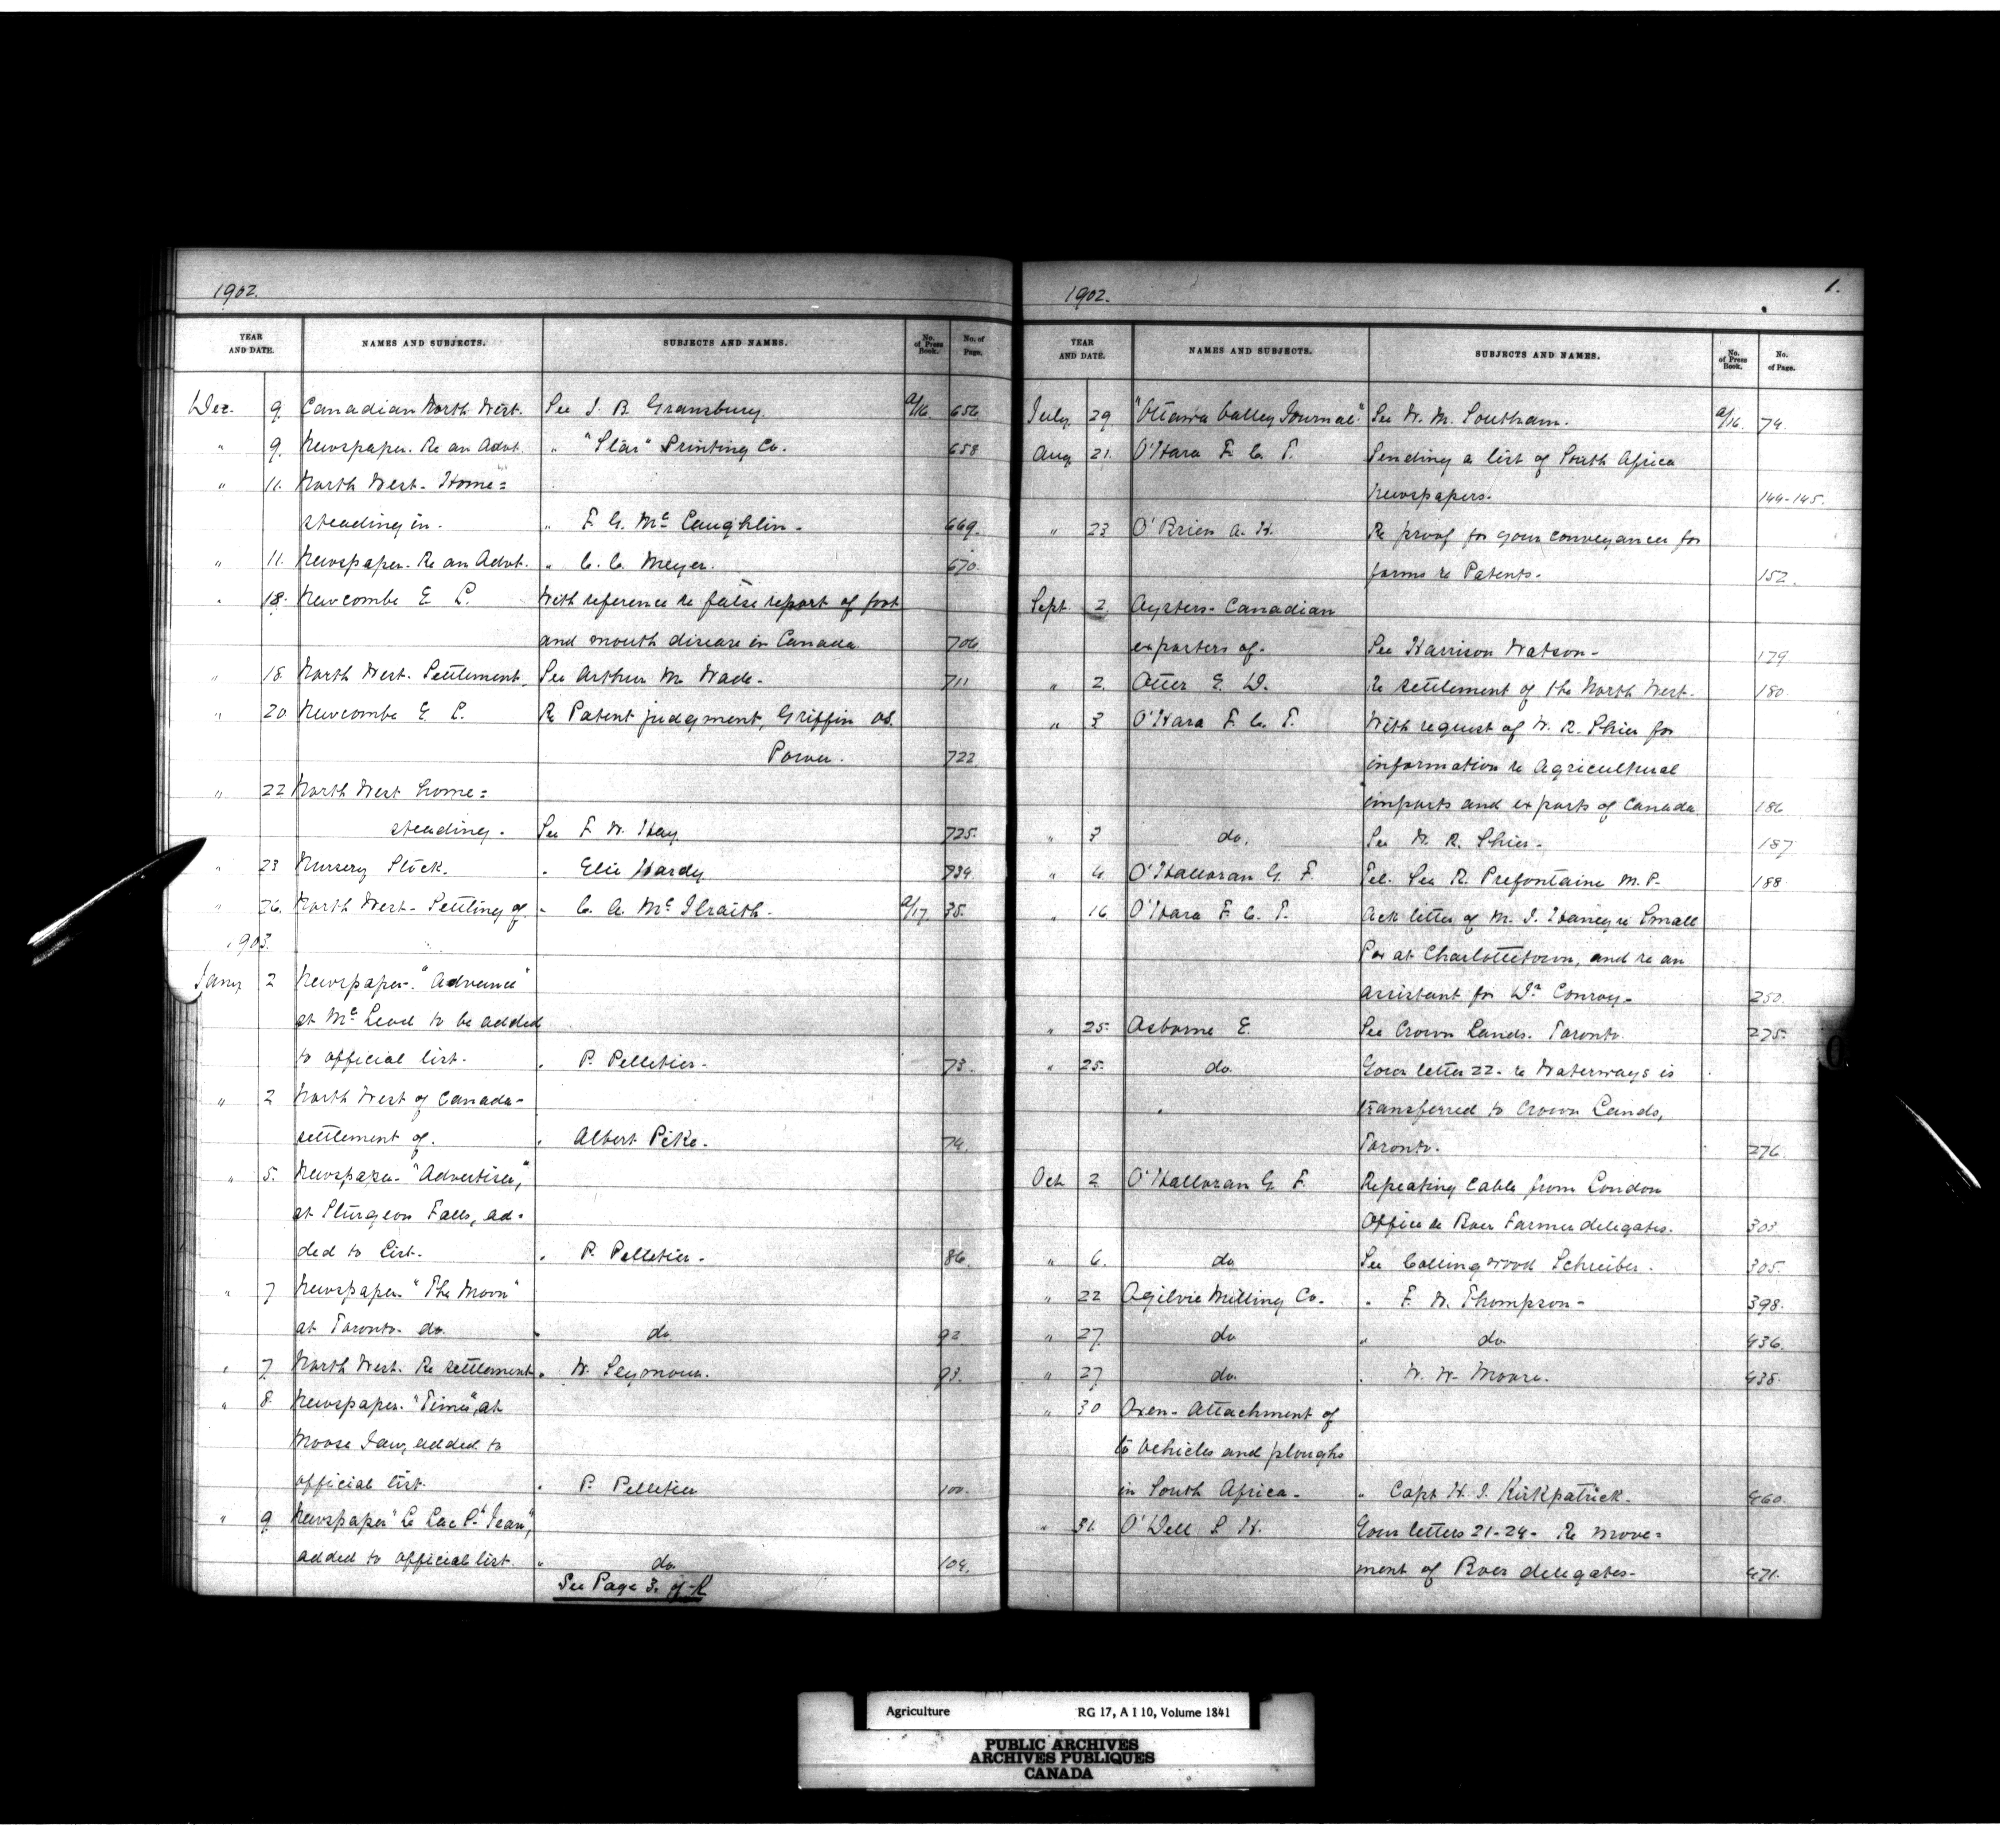 1902.
YEAR AND DATE.
NAMES AND SUBJECTS.
SUBJECTS AND NAMES.
No. of Press Book.
No. of Page.
Dec. 9. Canadian North West. See J. B. Gransbury. a/16. 656
" 9. Newspaper. Re an Advt. " "Star" Printing Co. 658
" 11. North West. Home=
steading in. " F. G. Mc Laughlin. 669.
" 11. Newspaper. Re an Advt. " C. C. Meyer. 670.
" 18. Newcombe E. L. With reference re false report of foot
and mouth disease in Canada. 706
" 18 North West. Settlement. See Arthur M. Wade. 711
" 20 Newcombe E. L. Re Patent judgment, Griffin vs.
Power. 722
" 22 North West home=
steading. See F. W. Hay. 725.
" 23 Nursery Stock. " Elie Hardy 734
" 26. North West. Settling of. " C. A. Mc Ilraith. a/17. 35.
1903.
Jany 2 Newspaper. "Advance"
at Mc Leod to be added
to official list. " P. Pelletier. 73.
" 2 North West of Canada-
settlement of. " Albert Pike. 74.
" 5. Newspaper. "Advertiser,"
at Sturgeon Falls, ad-
ded to List. " P. Pelletier. 86.
" 7 Newspaper. "The Moon"
at Toronto. do. " do. 92
" 7. North West. Re settlement " W. Seymour. 93.
" 8. Newspaper. "Times", at
Moose Jaw, added to
official list. " P. Pelletier 100.
" 9. Newspaper "Le Lac St Jean",
added to official list. " do. 104.
See Page 3. of
1902.
1.
YEAR AND DATE.
NAMES AND SUBJECTS.
SUBJECTS AND NAMES.
No. of Press Book.
No. of Page.
July 29 "Ottawa Valley Journal." See W. M. Southam. a/16. 74.
Aug 21. O'Hara F. C. T. Sending a list of South Africa
Newspapers. 144-145.
" 23 O'Brien A. H. Re proof for your conveyances for
forms re Patents. 152.
Sept. 2 Oysters- Canadian
exporters of. See Harrison Watson- 179
" 2. Otter E. D. Re settlement of the North West. 180.
" 3 O'Hara F. C. T. With request of W. R. Shier for
information re Agricultural
imports and exports of Canada. 186
" 3 do. See W. R. Shier. 187
" 4. O'Halloran G. F. Tel. See R. Prefontaine M. P. 188
" 16 O'Hara F. C. T. Ack letter of M. J. Haney re Small
Pox at Charlottetown, and re an
assistant for Dr Conroy. 250.
" 25. Osborne E. See Crown Lands. Toronto. 275.
" 25. do. Your letter 22- re Waterways is
transferred to Crown Lands,
Toronto. 276.
Oct 2 O'Halloran G. F. Repeating Cable from London
Office re Boer Farmer delegates. 303.
" 6. do See Collingwood Schreiber. 305.
" 22 Ogilvie Milling Co. " F. W. Thompson- 398.
" 27. do " do. 436.
" 27 do. " W. W. Moore. 438.
" 30 Oxen- Attachment of
to vehicles and ploughs
in South Africa. " Capt H. J. Kirkpatrick. 460.
" 31. O'Dell S. H. Your letters 21-24- Re move=
ment of Boer delegates- 471.
O.
Agriculture RG 17, A I 10, Volume 1841
PUBLIC ARCHIVES
ARCHIVES PUBLIQUES
CANADA